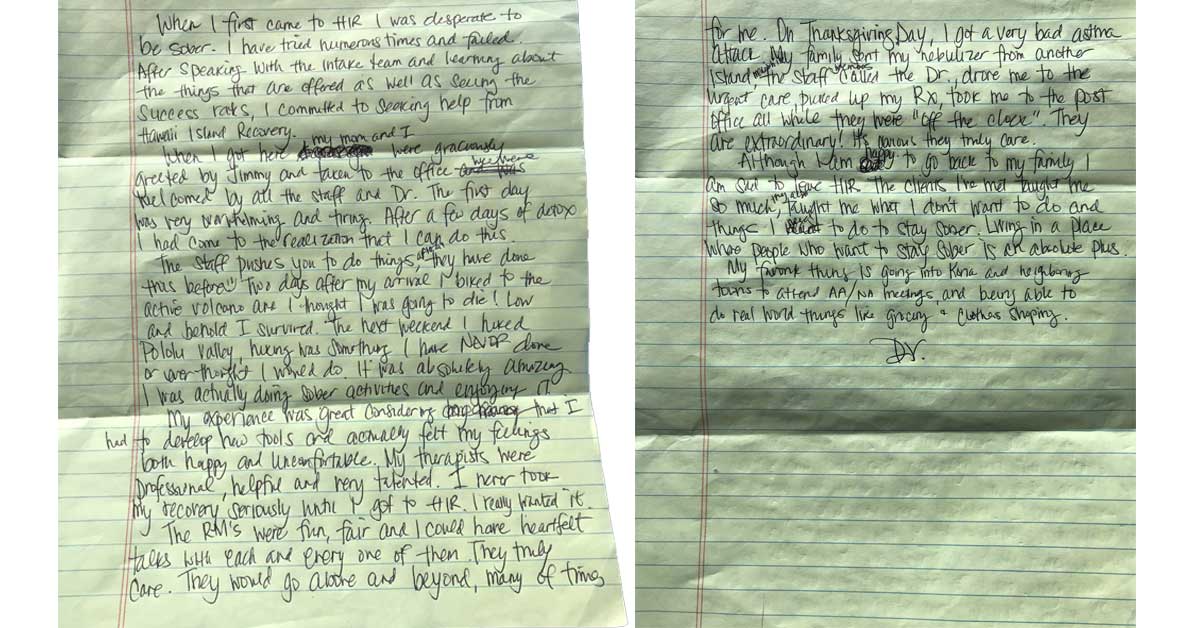 When I first came to HIR I was desperate to
be sober. I have tried numerous times and failed.
After speaking with the intake team and learning about
the things that are offered as well as seeing the
success rates, I committed to seeking help from
Hawaii Island Recovery.
my mom and I
When I got here were graciously
greeted by Jimmy and taken to the office and was we were
welcomed by all the staff and Dr. The first day
was very overwhelming and tiring. After a few days of detox
I had come to the realization that I can do this.
The staff pushes you to do things, after they have done
this before. Two days after my arrival I biked to the
active volcano and I thought I was going to die! Low
and behold I survived. The next weekend I hiked
Pololu Valley, hiking was something I have NEVER done
or ever thought I would do. It was absolutely amazing
I was actually doing sober activities and enjoying it.
My experience was great considering that I
had to develop new tools and actually felt my feelings
both happy and uncomfortable. My therapists were
professional, helpful and very talented. I never took
my recovery seriously until I got to HIR. I really wanted it.
The RM's were fun, fair and I could have heartfelt
talks with each and every one of them. They truly
care. They would go above and beyond, many of times
for me. On Thanksgiving Day, I got a very bad asthma
attack. My family sent my nebulizer from another
Island, the staff called the Dr., drove me to the
urgent care picked up my RX, took me to the post
office all while they were "off the clock". They
are extraordinary! It's obvious they truly care.
Although I am happy to go back to my family I
am sad to leave HIR. The clients I've met taught me
so much, taught me what I don't want to do and
things I need to do to stay sober. Living in a place
where people who want to stay sober is an absolute plus.
My favorite thing is going into Kona and neighboring
towns to attend AA/NA meetings and being able to
do real world things like grocery + clothes shoping.
DV.